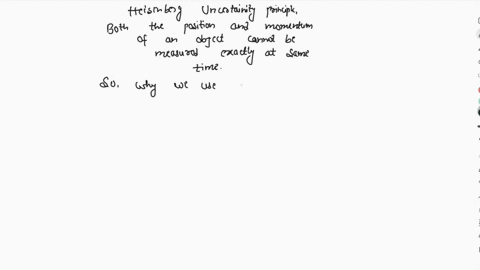 Heisenberg Uncertainity principle,
Both the position and momentum
of an object cannot be
measured exactly at same
time.
So, why we use